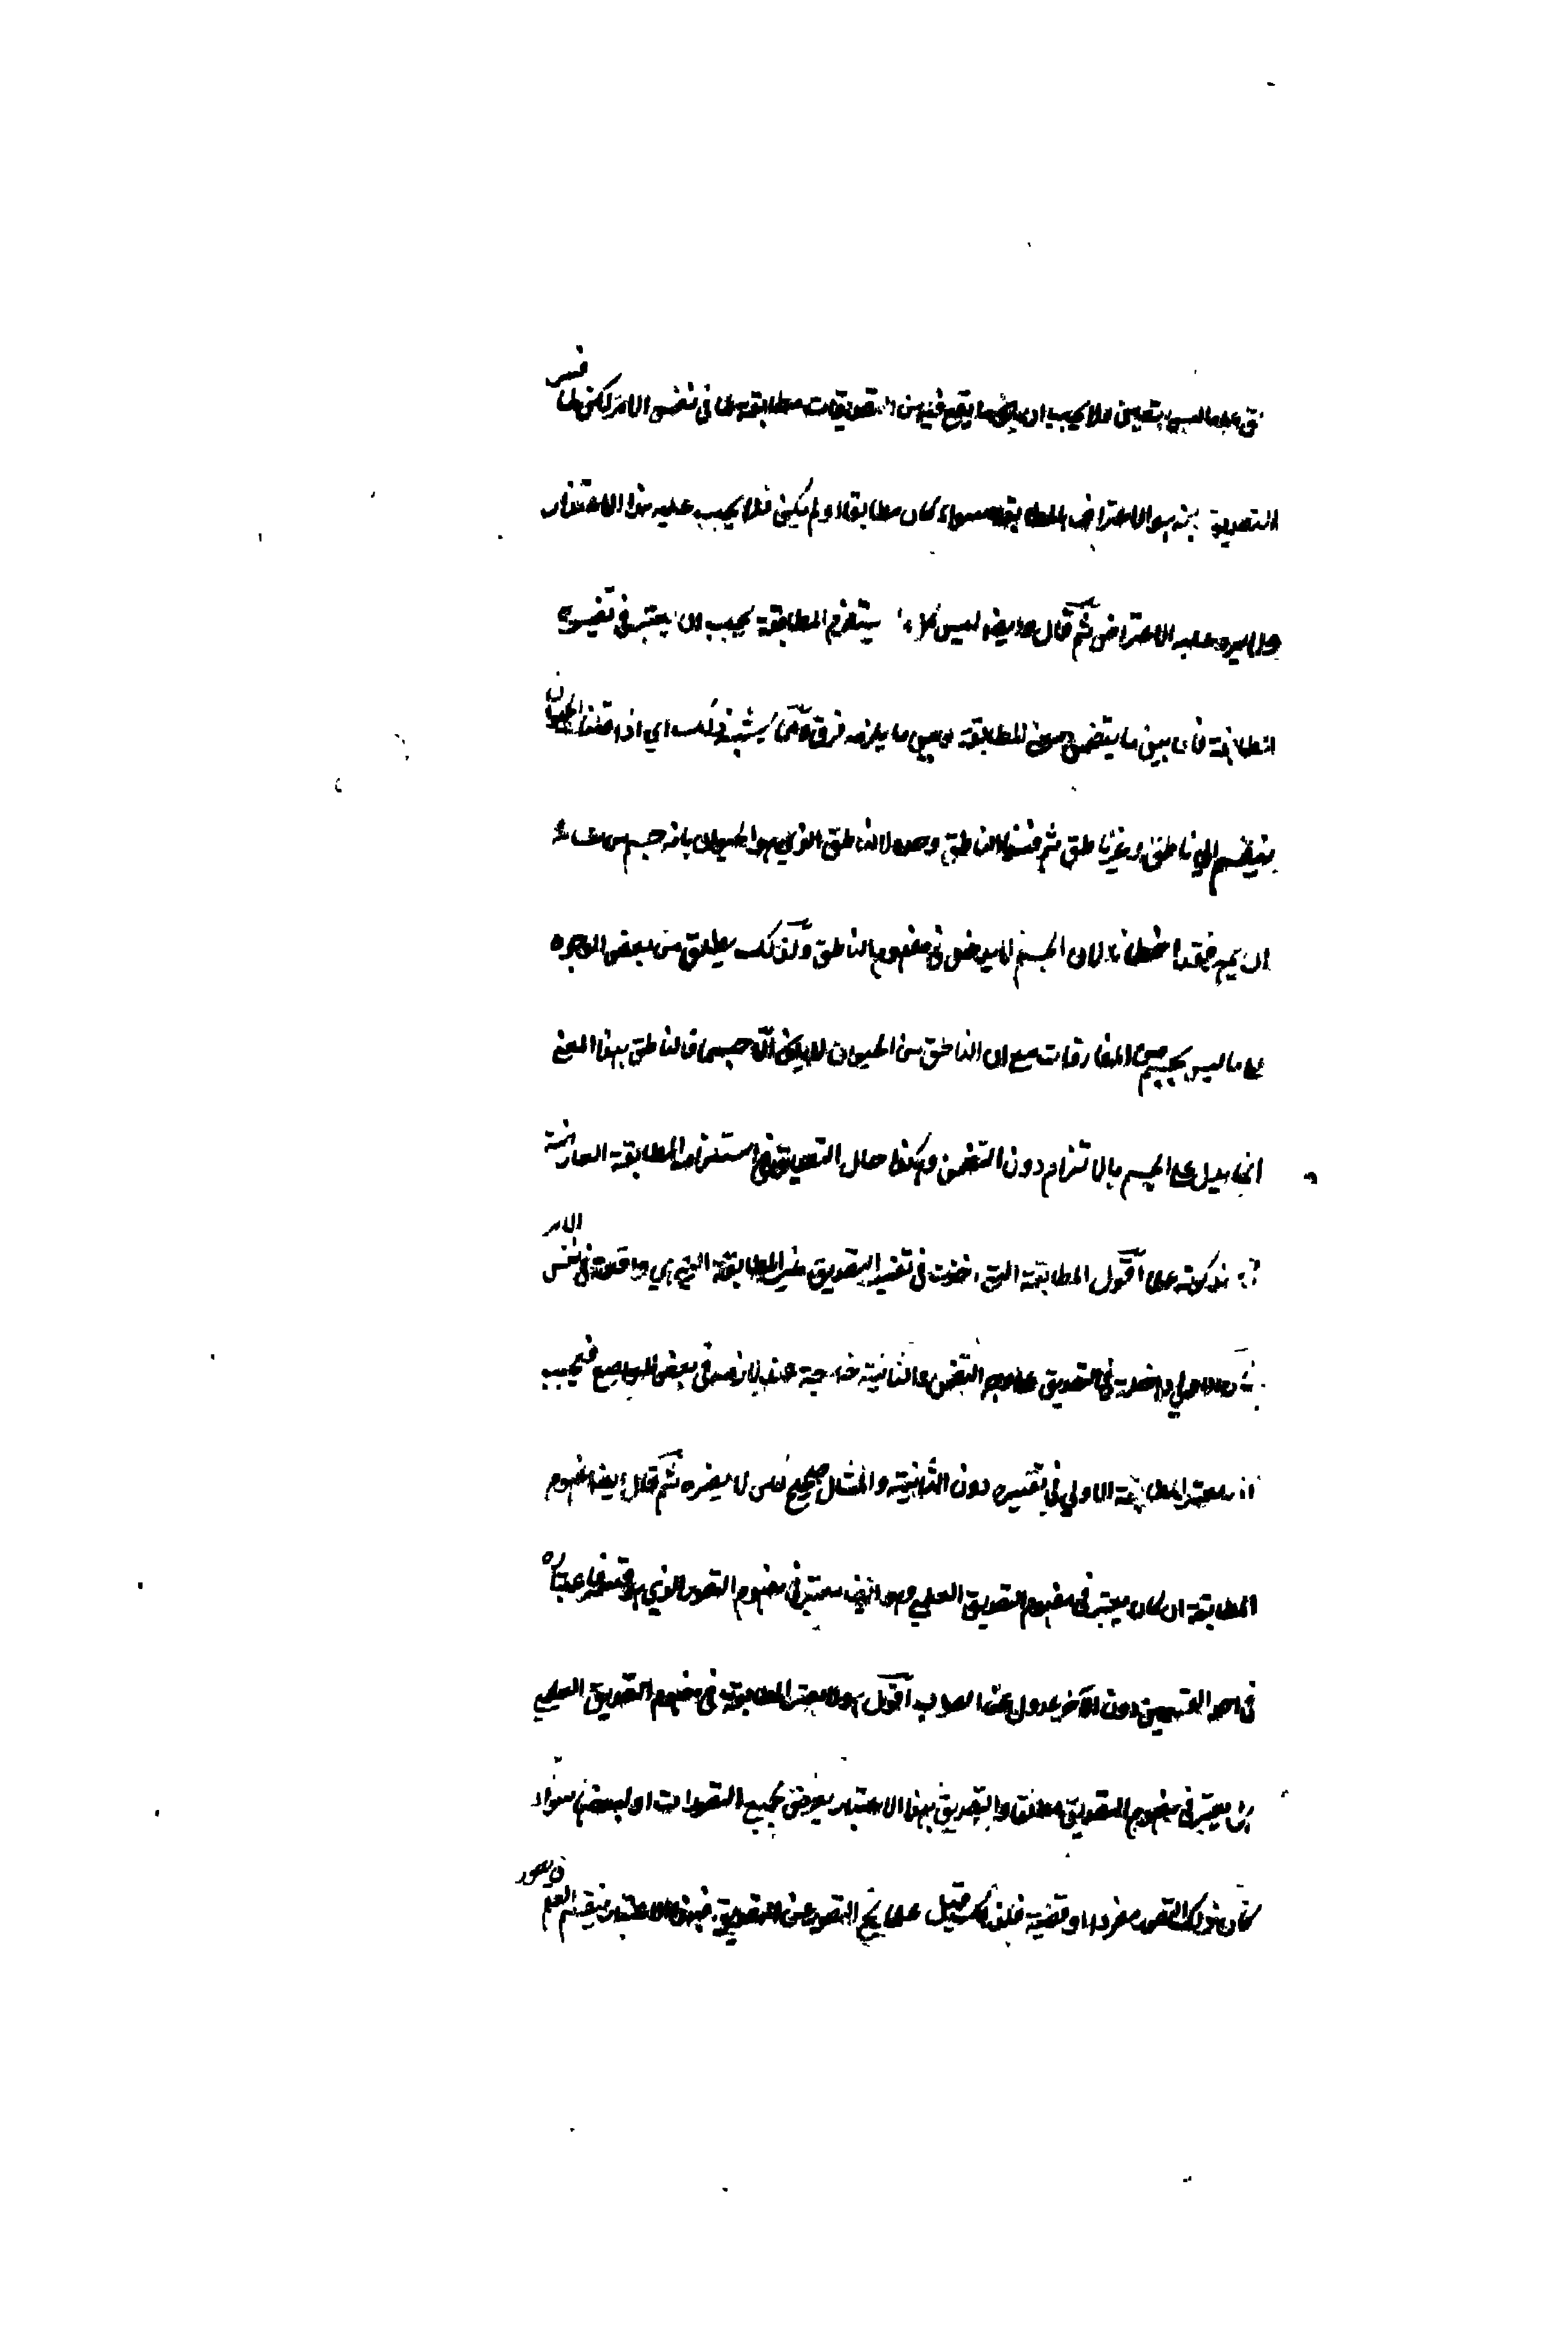 على ما ليس بتعين ولا يجب ان يكون ما يقع فيه من التصديقات مطابقة لما في نفس الامر لكن لما فسر
التصديق بنه هو الاعتراض المطابقة سواء كان مطابقا او لم يكن فلا يجب عليه هذا الاعتذار
ولا يرد عليه الاعتراض ثم قال وايضا ليس كلما يستلزم المطابقة يجب ان يعتبر في تفسيره
المطابقة فان بين ما يتضمن معنى المطابقة وبين ما يلزمه فرق كما يشبه ذلك اي اذا قلنا الحيوان
ينقسم الي ناطق وغير ناطق ثم فسر الناطق وحده لا الناطق الذي هو الحيوان بانه جسم من شانه
ان يميز فقد اخطأ لان الجسم لا يدخل في مفهوم الناطق ولذلك يطلق من بعض الوجوه
على ما ليس بجسم من المفارقات مع ان الناطق من الحيوان لا يكون الا جسما فالناطق بهذا المعنى
انما يدل على الجسم بالالتزام دون التضمن وهكذا حال التصديق في استلزام المطابقة العارضة
ذكرته على اقول المطابقة التي اخذت في تفسير التصديق غير المطابقة التي هي واقعة في نفس الامر
الاولي داخلة في التصديق على وجه التضمن والثانية خارجة عنه لازمة في بعض المواضع فيجب
ان يعتبر المطابقة الاولي في تفسيره دون الثانية والمثال صحيح لكن لا يضره ثم قال وايضا مفهوم
المطابقة ان كان يعتبر في مفهوم التصديق العلمي وهو ايضا معتبر في مفهوم التصور الذي هو قسيمه فاعتباره
في احد القسمين دون الآخر عدول عن الصواب اقول هو لا يعتبر المطابقة في مفهوم التصديق العلمي
بل يعتبر في مفهوم التصديق مطلقا والتصديق بهذا الاعتبار يعرض لجميع التصورات او لبعضها سواء
كان ذلك التصور مفردا او قضية فلذلك قيل على ما يخ التصور عن التصديق فبهذا الاعتبار ينقسم العلم